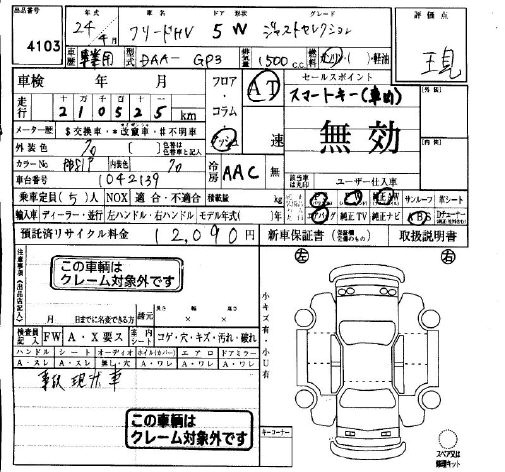 出品番号 4103
年式 24年4月
車名 フリードHV
ドア 形状 5 W
グレード ジャストセレクション
評価点 現
車歴 事業用
型式 DAA-GP3
排気量 1500 c.c.
燃料 ガソリン・( )・軽油
車検 年 月
フロア・コラム
AT
セールスポイント
スマートキー(車内)
無効
走行 十万 210525 km
メーター歴 $交換車・*改竄車・#不明車
外装色 ( )
カラーNo. 内装色
車台番号 1042139
速
冷房 AAC 無
ユーザー仕入車
乗車定員(5)人 NOX 適合・不適合 積載量 kg
輸入車 ディーラー・並行 左ハンドル・右ハンドル モデル年式( )年
純正TV 純正ナビ
サンルーフ 革シート
ABS
預託済リサイクル料金 12,090円
新車保証書 取扱説明書
注意事項(出品店記入)
この車輌は
クレーム対象外です
月 日までに名変できる方
諸元 長さ × 幅 × 高さ
検査員記入 FW A・X要ス 車内シート コゲ・穴・キズ・汚れ・破れ
ハンドル シート オーディオ ホイル(カバー) エアロ ドアミラー
A・スレ A・スレ 無し・穴 A・ワレ A・ワレ A・ワレ
事故現状車
この車輌は
クレーム対象外です
小キズ有・小U有
キーコーナー
左 右
スペア又は
修理キット